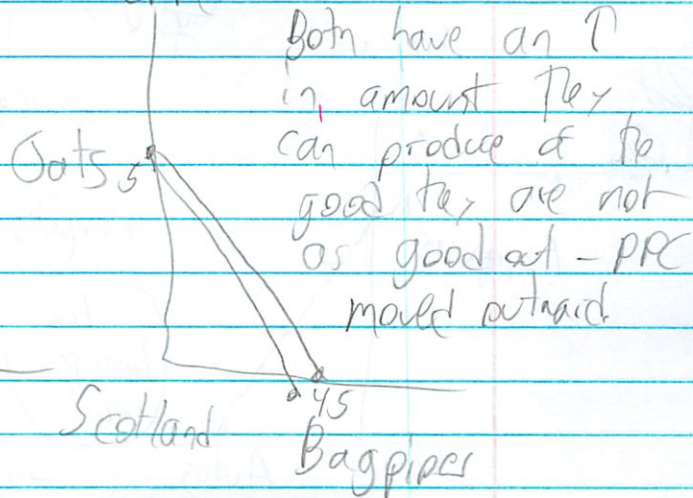 Both have an ↑
in amount they
can produce of the
Oats 5
good they are not
as good at - PPC
moved outward.
45
Scotland
Bagpipes